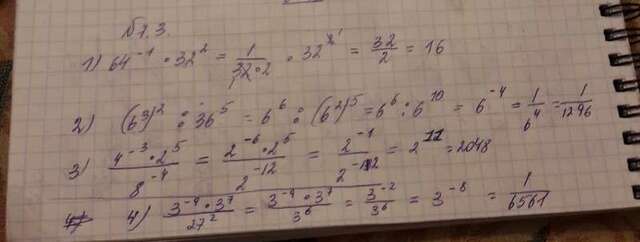 №1.3.
1) 64⁻¹ · 32² = 1/(32·2) · 32² = 32/2 = 16
2) (6³)² : 36⁵ = 6⁶ : (6²)⁵ = 6⁶ : 6¹⁰ = 6⁻⁴ = 1/6⁴ = 1/1296
3) (4⁻³ · 2⁵)/8⁻⁴ = (2⁻⁶ · 2⁵)/2⁻¹² = 2⁻¹/2⁻¹² = 2¹¹ = 2048
4) (3⁻⁹ · 3⁷)/27² = (3⁻⁹ · 3⁷)/3⁶ = 3⁻²/3⁶ = 3⁻⁸ = 1/6561